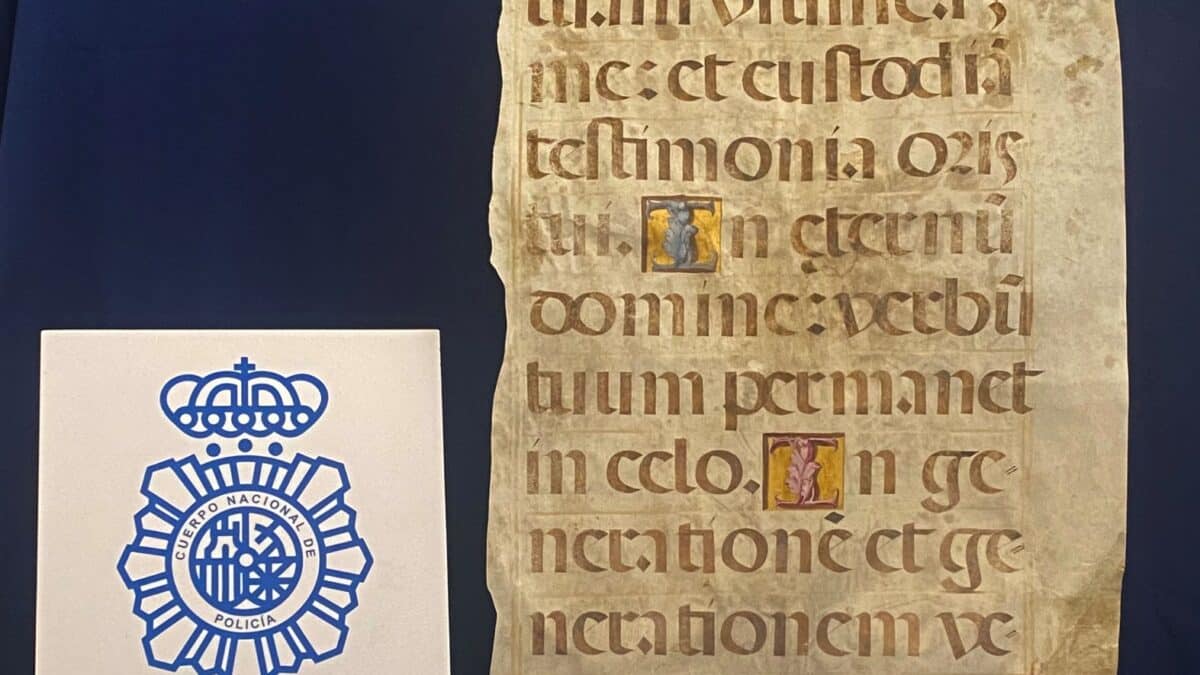 me: et cuſtodiā
teſtimonia oris
tui. In ęternū
domine: verbū
tuum permanet
in celo. In ge=
nerationē et ge=
nerationem ve=
CUERPO NACIONAL DE
POLICÍA